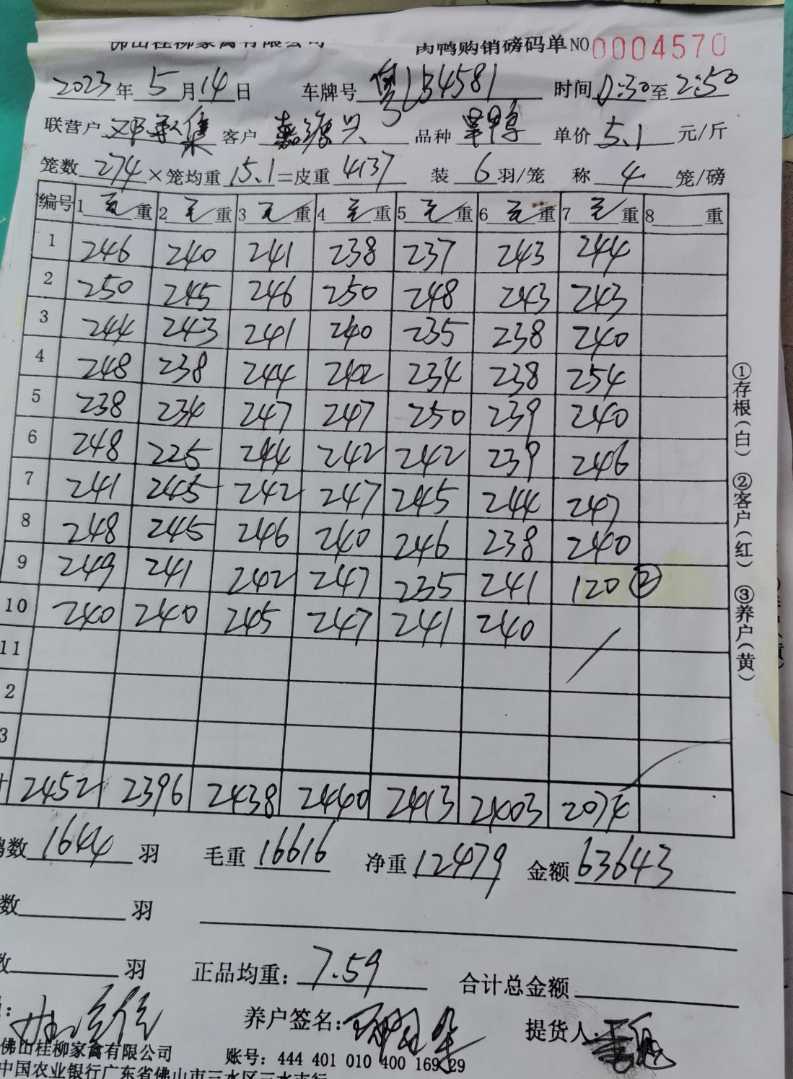 佛山桂柳家禽有限公司 肉鸭购销磅码单 NO 0004570
2023年5月14日 车牌号 粤L34581 时间 0:30至2:50
联营户 客户 品种 单价 5.1 元/斤
笼数 274 × 笼均重 15.1 = 皮重 4137 装 6 羽/笼 称 4 笼/磅
编号 1 毛 重 2 毛 重 3 毛 重 4 毛 重 5 毛 重 6 毛 重 7 毛 重 8 重
1 246 240 241 238 237 243 244
2 250 245 246 250 248 243 243
3 244 243 241 240 235 238 240
4 248 238 244 242 234 238 254
5 238 234 247 247 250 239 240
6 248 225 244 242 242 239 246
7 241 245 242 247 245 244 247
8 248 245 246 240 246 238 240
9 249 241 242 247 235 241 120 ②
10 240 240 245 247 241 240 /
11
2
3
2452 2396 2438 2440 2413 2403 2074
数 1644 羽 毛重 16616 净重 12479 金额 63643
数 羽
羽 正品均重: 7.59 合计总金额
养户签名: 提货人:
佛山桂柳家禽有限公司 账号: 444 401 010 400 169 29
中国农业银行广东省佛山市三水区三水支行
①存根(白) ②客户(红) ③养户(黄)